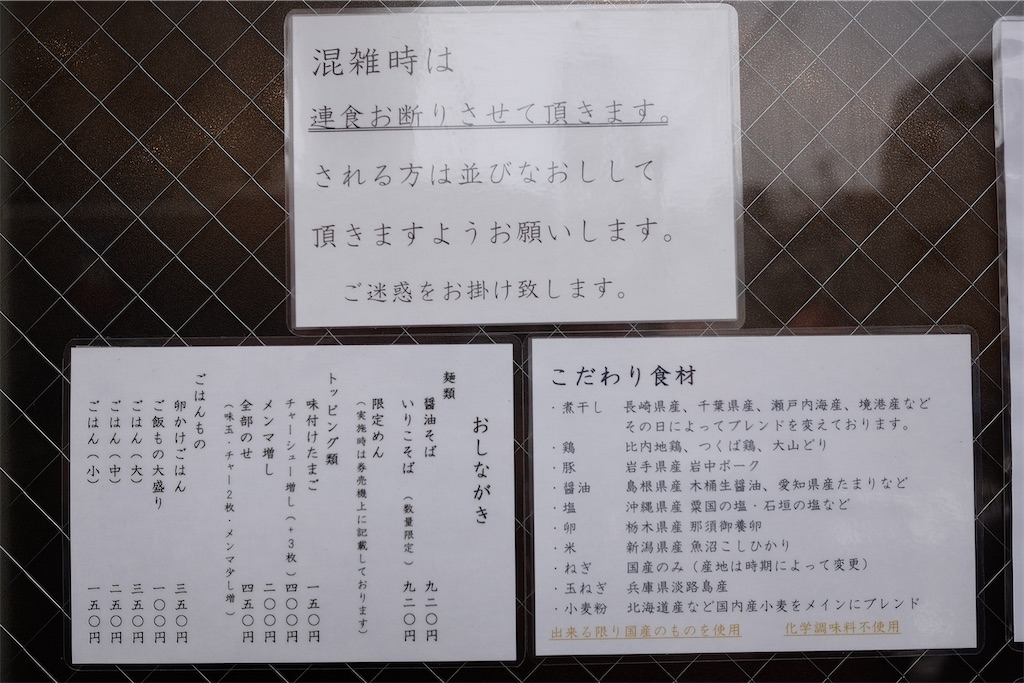 混雑時は
連食お断りさせて頂きます。
される方は並びなおしして
頂きますようお願いします。
ご迷惑をお掛け致します。
おしながき
麺類
醤油そば 九二〇円
いりこそば（数量限定） 九二〇円
限定めん
（実施時は券売機上に記載しております）
トッピング類
味付けたまご 一五〇円
チャーシュー増し（＋３枚） 四〇〇円
メンマ増し 二〇〇円
全部のせ 四五〇円
（味玉・チャー２枚・メンマ少し増）
ごはんもの
卵かけごはん 三五〇円
ご飯もの大盛り 一〇〇円
ごはん（大） 三五〇円
ごはん（中） 二五〇円
ごはん（小） 一五〇円
こだわり食材
・煮干し 長崎県産、千葉県産、瀬戸内海産、境港産など
その日によってブレンドを変えております。
・鶏 比内地鶏、つくば鶏、大山どり
・豚 岩手県産 岩中ポーク
・醤油 島根県産 木桶生醤油、愛知県産たまりなど
・塩 沖縄県産 粟国の塩・石垣の塩など
・卵 栃木県産 那須御養卵
・米 新潟県産 魚沼こしひかり
・ねぎ 国産のみ（産地は時期によって変更）
・玉ねぎ 兵庫県淡路島産
・小麦粉 北海道産など国内産小麦をメインにブレンド
出来る限り国産のものを使用 化学調味料不使用